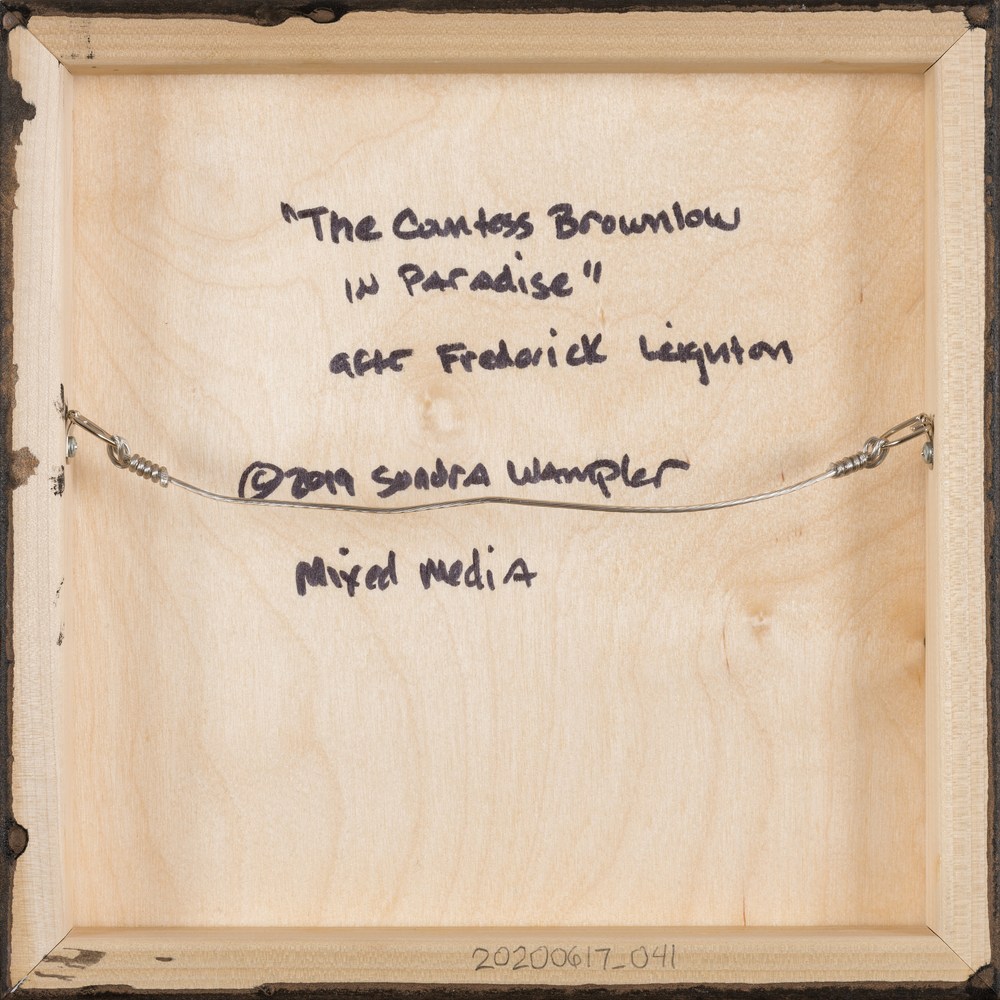 "The Countess Brownlow
in Paradise"
after Frederick Leighton
©2019 Sandra Wampler
Mixed Media
20200617_041